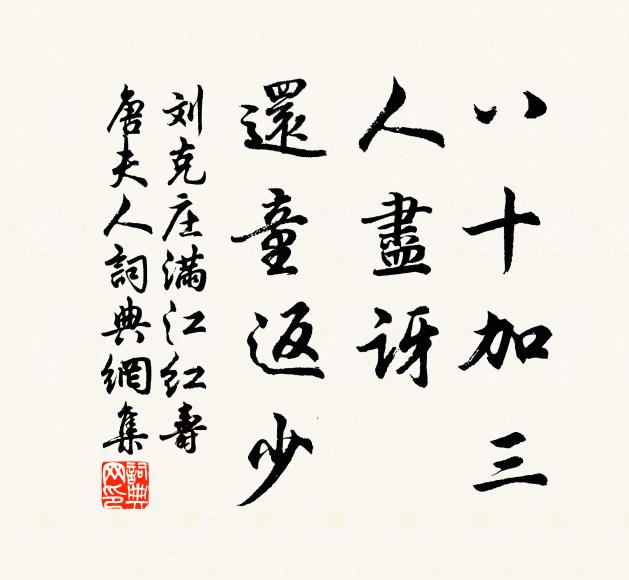 八十加三
人盡訝
還童返少
刘克庄满江红壽
唐夫人詞典網集
詞典
网印